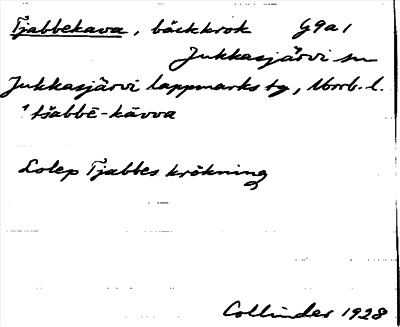 Tjabbekava, bäckkrok G9a1
Jukkasjärvi sn
Jukkasjärvi lappmarks tg, Norrb. l.
tšabbē-kāvva
Lolep Tjabbes krökning
Collinder 1928